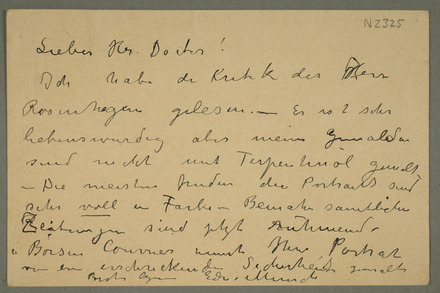 N2325
Lieber Hr. Doctor!
Ich habe die Kritik des Herr
Rosenhagen gelesen. — Er ist sehr
liebenswürdig aber meine Gemälde
sind nicht mit Terpentinöl gemalt
— Die meisten finden die Portraits sind
sehr voll in Farbe — Beinahe sämmtliche
Zeitungen sind jetzt rühmend.
Börsen Courier nennt Ihr Portrat
von einer erschreckenden Sicherheit gemalt
Beste Grüsse Edv. Munch